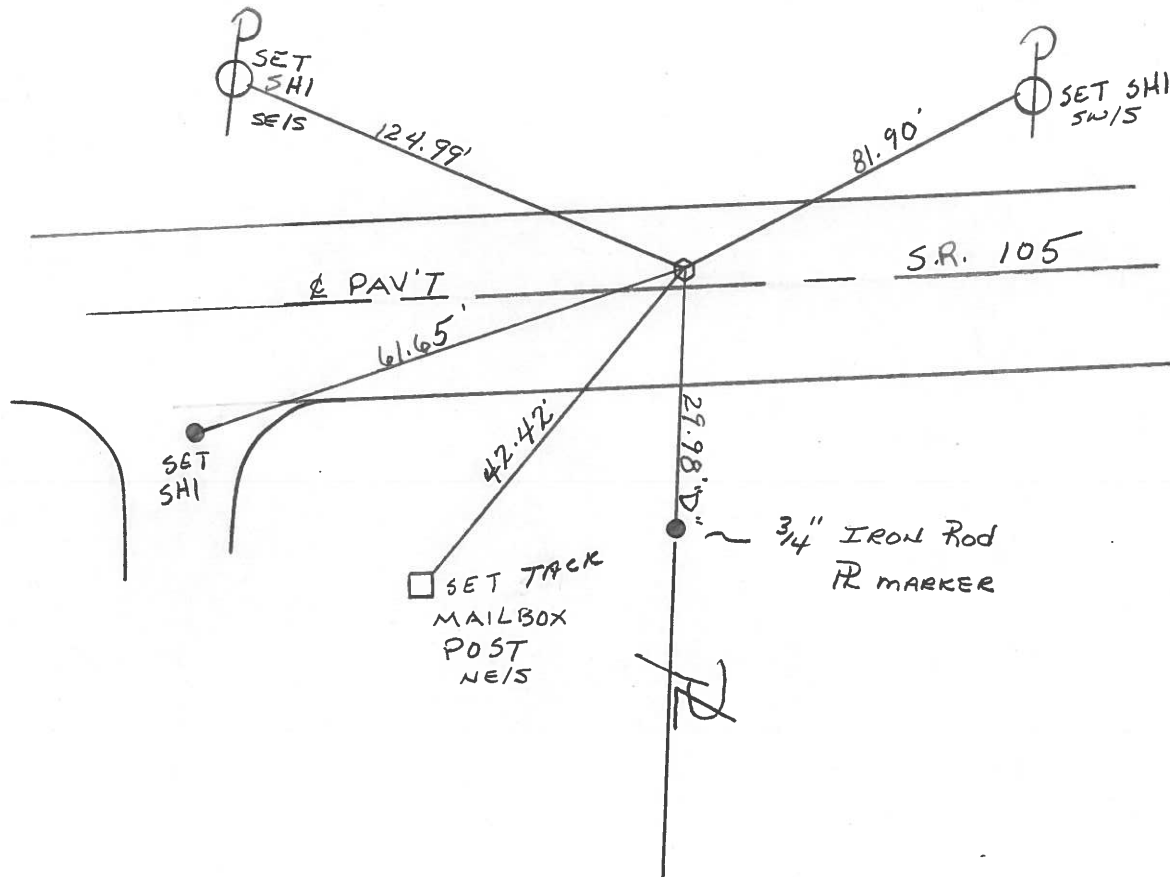 SET
SHI
SE/S
124.99'
81.90'
SET SHI
SW/S
℄ PAV'T
S.R. 105
61.65'
SET
SHI
42.42'
29.98' "D"
3/4" IRON Rod
PL MARKER
SET TACK
MAILBOX
POST
NE/S
PL